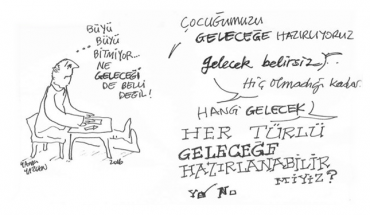 BÜYÜ
BÜYÜ
BİTMİYOR...
NE
GELECEĞİ
DE BELLİ
DEĞİL!
2016
ÇOCUĞUMUZU
GELECEĞE HAZIRLIYORUZ
gelecek belirsiz
Hiç olmadığı kadar.
HANGİ GELECEK
HER TÜRLÜ
GELECEĞE
HAZIRLANABİLİR
MİYİZ?